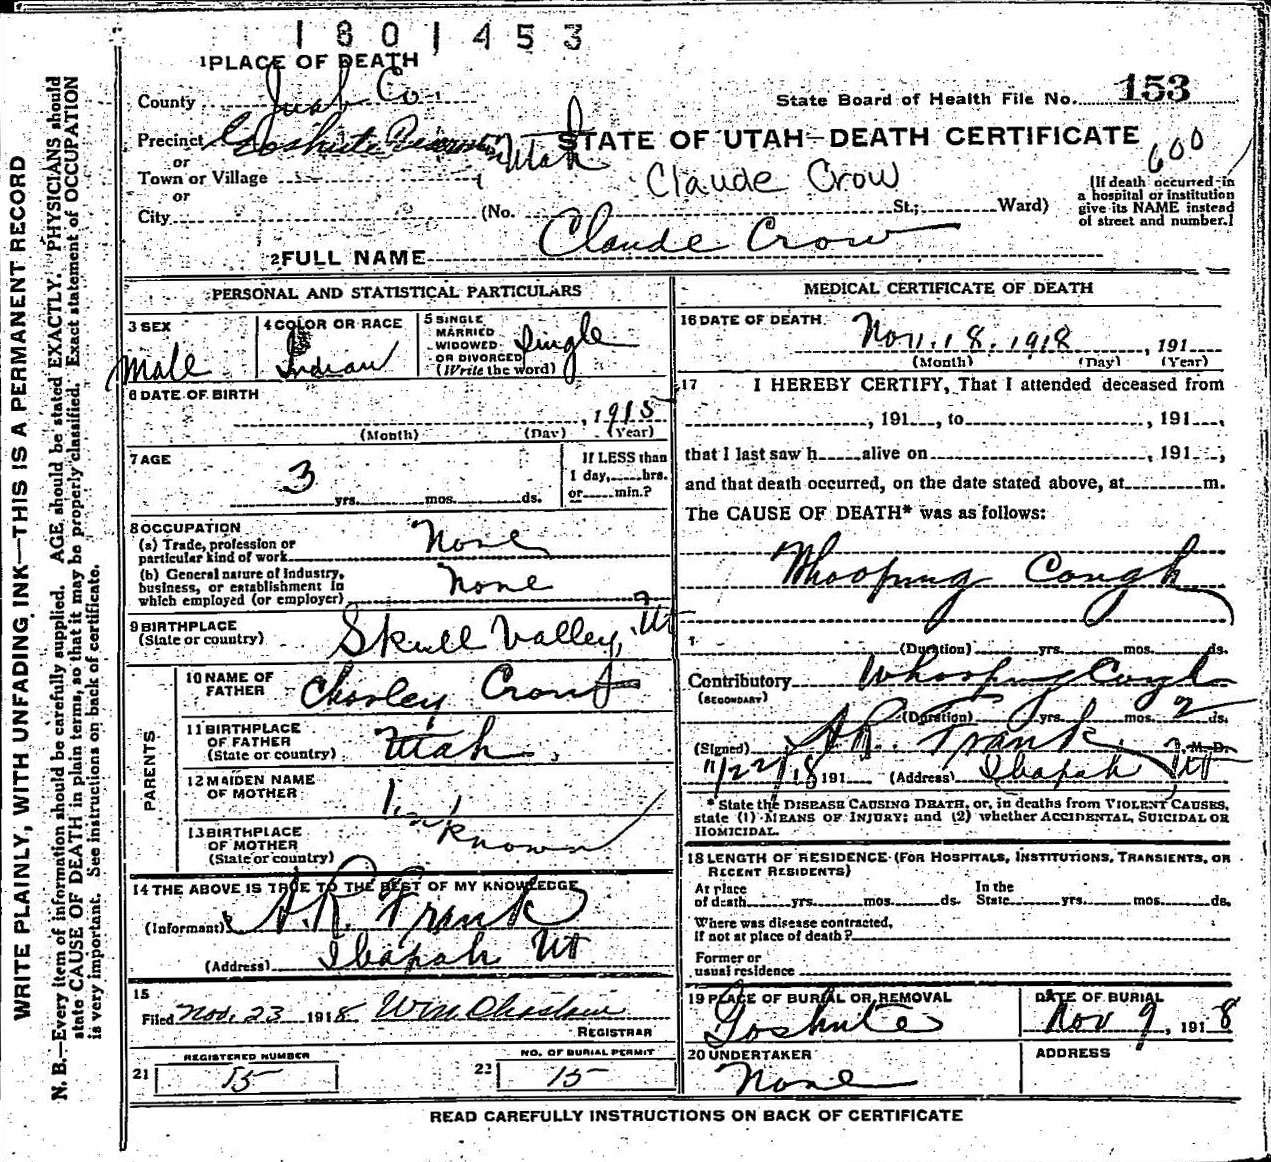 1801453
1 PLACE OF DEATH
County Juab Co.
State Board of Health File No. 153
Precinct Goshute Utah
STATE OF UTAH—DEATH CERTIFICATE
600
or
Town or Village
Claude Crow
or
City (No. St.; Ward)
(If death occurred in
a hospital or institution
give its NAME instead
of street and number.)
2 FULL NAME Claude Crow
PERSONAL AND STATISTICAL PARTICULARS
3 SEX
Male
4 COLOR OR RACE
Indian
5 SINGLE
MARRIED
WIDOWED
OR DIVORCED
(Write the word)
Single
6 DATE OF BIRTH
, 1915
(Month) (Day) (Year)
7 AGE
3 yrs. mos. ds.
If LESS than
1 day, hrs.
or min.?
8 OCCUPATION
(a) Trade, profession or
particular kind of work None
(b) General nature of Industry,
business, or establishment in
which employed (or employer) None
9 BIRTHPLACE
(State or country) Skull Valley, Ut
PARENTS
10 NAME OF
FATHER Charley
11 BIRTHPLACE
OF FATHER
(State or country) Utah
12 MAIDEN NAME
OF MOTHER
Unknown
13 BIRTHPLACE
OF MOTHER
(State or country)
14 THE ABOVE IS TRUE TO THE BEST OF MY KNOWLEDGE
(Informant) A.R. Frank
(Address) Ibapah Ut
15
Filed Nov. 23 1918 Wm
REGISTRAR
REGISTERED NUMBER
21 15
NO. OF BURIAL PERMIT
22 15
MEDICAL CERTIFICATE OF DEATH
16 DATE OF DEATH
Nov. 18. 1918, 191
(Month) (Day) (Year)
17 I HEREBY CERTIFY, That I attended deceased from
, 191 , to , 191 ,
that I last saw h alive on , 191 ,
and that death occurred, on the date stated above, at m.
The CAUSE OF DEATH* was as follows:
Whooping Cough
(Duration) yrs. mos. ds.
Contributory Whooping Cough
(SECONDARY)
(Duration) yrs. mos. 2 ds.
(Signed) A.R. Frank M. D.
11/22/18 191 (Address) Ibapah Ut
* State the DISEASE CAUSING DEATH, or, in deaths from VIOLENT CAUSES,
state (1) MEANS OF INJURY; and (2) whether ACCIDENTAL, SUICIDAL OR
HOMICIDAL.
18 LENGTH OF RESIDENCE (FOR HOSPITALS, INSTITUTIONS, TRANSIENTS, OR
RECENT RESIDENTS)
At place
of death yrs. mos. ds.
In the
State yrs. mos. ds.
Where was disease contracted,
if not at place of death?
Former or
usual residence
19 PLACE OF BURIAL OR REMOVAL
Goshute
DATE OF BURIAL
Nov 9, 1918
20 UNDERTAKER
None
ADDRESS
READ CAREFULLY INSTRUCTIONS ON BACK OF CERTIFICATE
WRITE PLAINLY, WITH UNFADING INK—THIS IS A PERMANENT RECORD
N. B.—Every item of information should be carefully supplied. AGE should be stated EXACTLY. PHYSICIANS should
state CAUSE OF DEATH in plain terms, so that it may be properly classified. Exact statement of OCCUPATION
is very important. See instructions on back of certificate.